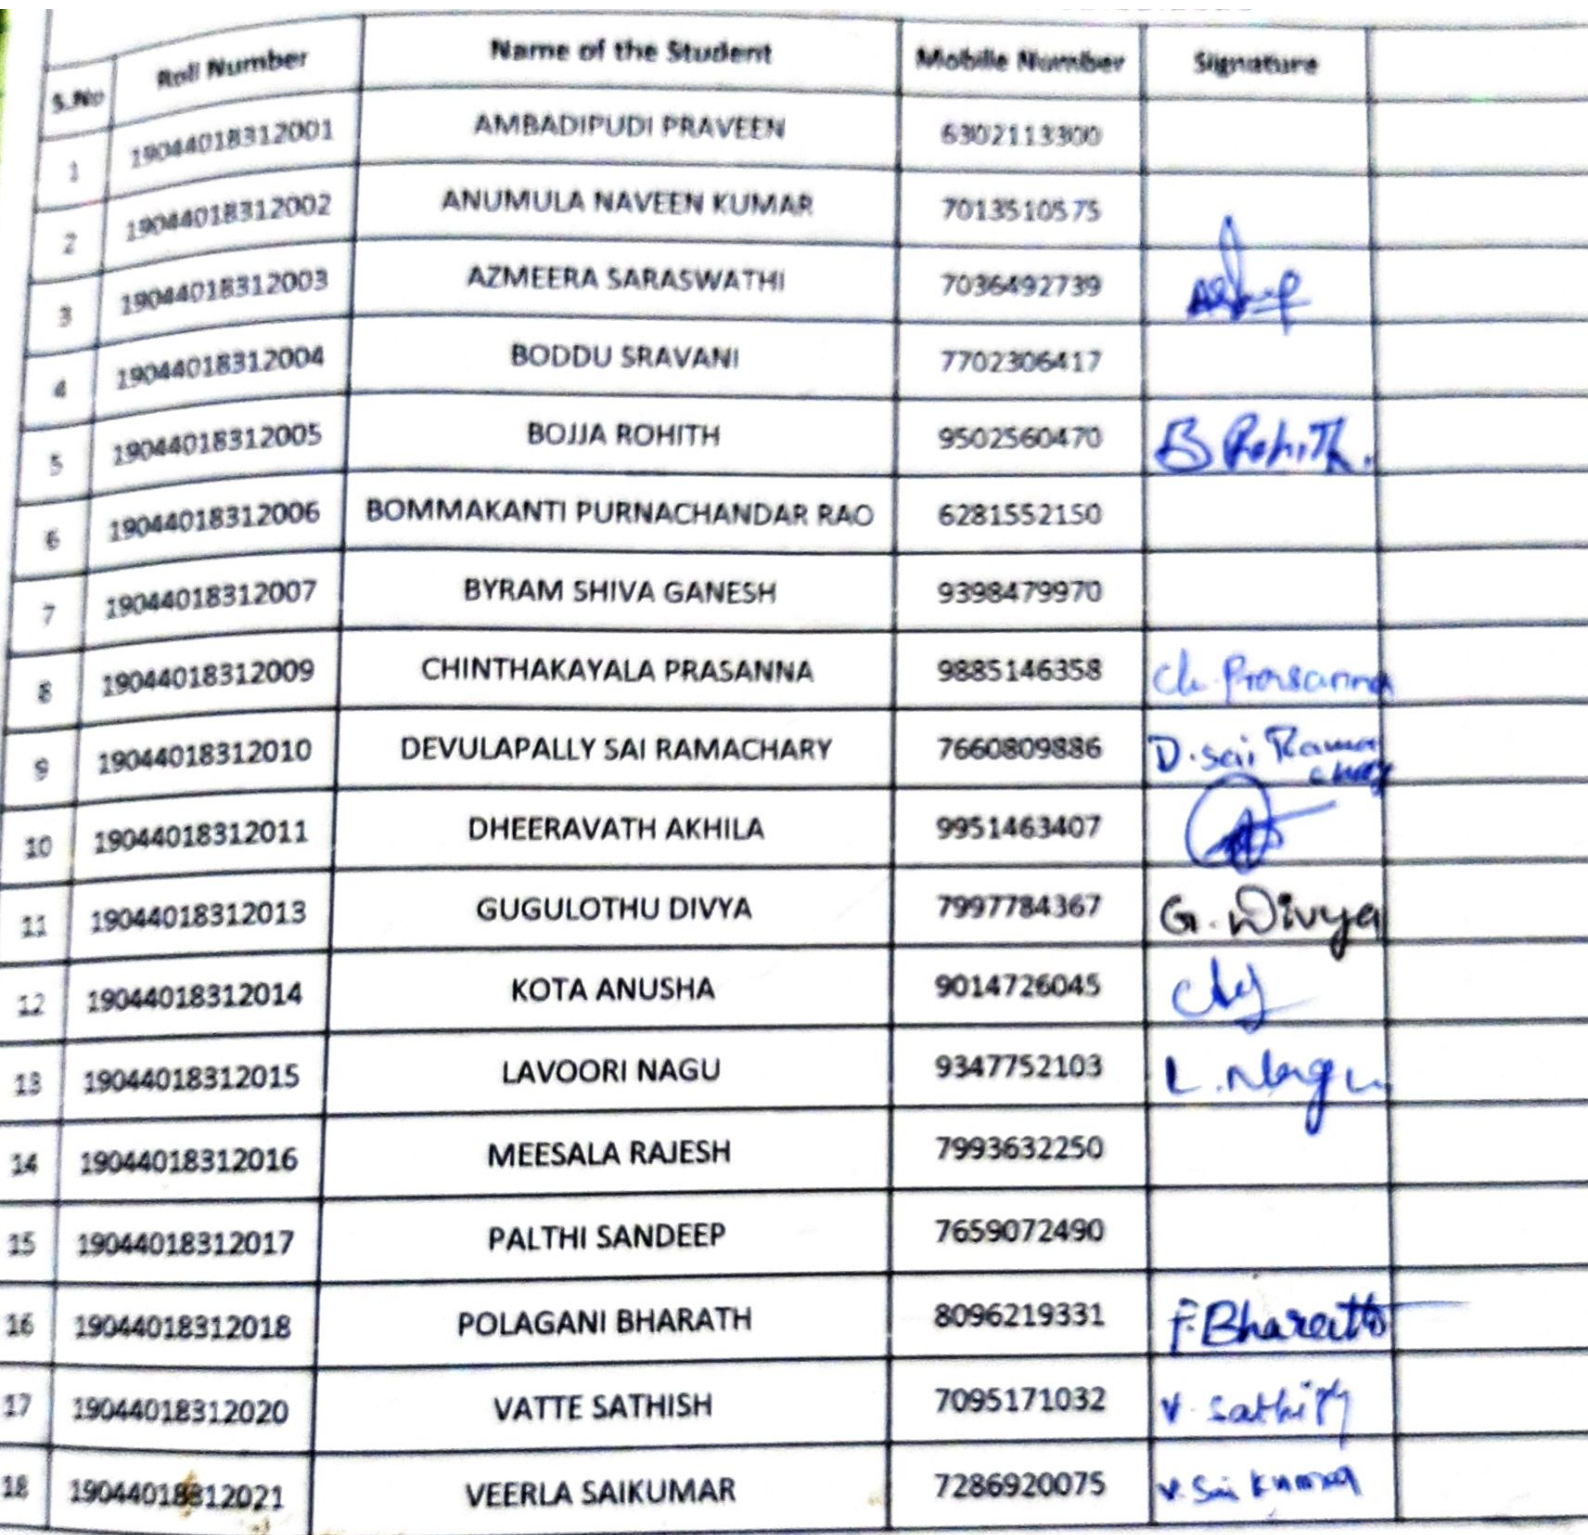 S.No Roll Number Name of the Student Mobile Number Signature
1 19044018312001 AMBADIPUDI PRAVEEN 6302113300
2 19044018312002 ANUMULA NAVEEN KUMAR 7013510575
3 19044018312003 AZMEERA SARASWATHI 7036492739
4 19044018312004 BODDU SRAVANI 7702306417
5 19044018312005 BOJJA ROHITH 9502560470 B Rohith.
6 19044018312006 BOMMAKANTI PURNACHANDAR RAO 6281552150
7 19044018312007 BYRAM SHIVA GANESH 9398479970
8 19044018312009 CHINTHAKAYALA PRASANNA 9885146358 Ch. Prasanna
9 19044018312010 DEVULAPALLY SAI RAMACHARY 7660809886 D. Sai Rama
chary
10 19044018312011 DHEERAVATH AKHILA 9951463407
11 19044018312013 GUGULOTHU DIVYA 7997784367 G. Divya
12 19044018312014 KOTA ANUSHA 9014726045
13 19044018312015 LAVOORI NAGU 9347752103 L. Nagu
14 19044018312016 MEESALA RAJESH 7993632250
15 19044018312017 PALTHI SANDEEP 7659072490
16 19044018312018 POLAGANI BHARATH 8096219331 P. Bharath
17 19044018312020 VATTE SATHISH 7095171032 V. Sathish
18 19044018312021 VEERLA SAIKUMAR 7286920075 V. Sai Kumar